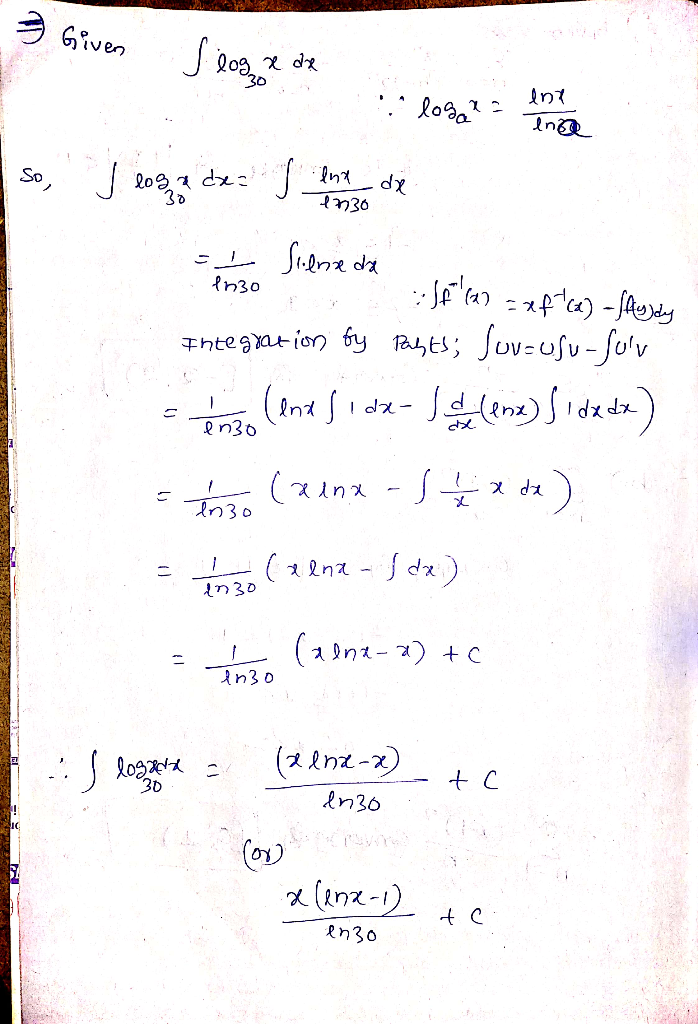 ⇒ Given ∫ log₃₀ x dx
∵ logₐx = lnx / lna
So, ∫ log₃₀ x dx = ∫ lnx / ln30 dx
= 1/ln30 ∫1·lnx dx
∵ ∫f⁻¹(x) = xf⁻¹(x) - ∫f(y)dy
Integration by Parts; ∫uv = u∫v - ∫u'v
= 1/ln30 (lnx ∫ 1 dx - ∫ d/dx (lnx) ∫ 1dx dx)
= 1/ln30 (x lnx - ∫ 1/x x dx)
= 1/ln30 (x lnx - ∫ dx)
= 1/ln30 (x lnx - x) + c
∴ ∫ log₃₀ x dx = (x lnx - x) / ln30 + c
(or)
x (lnx - 1) / ln30 + c